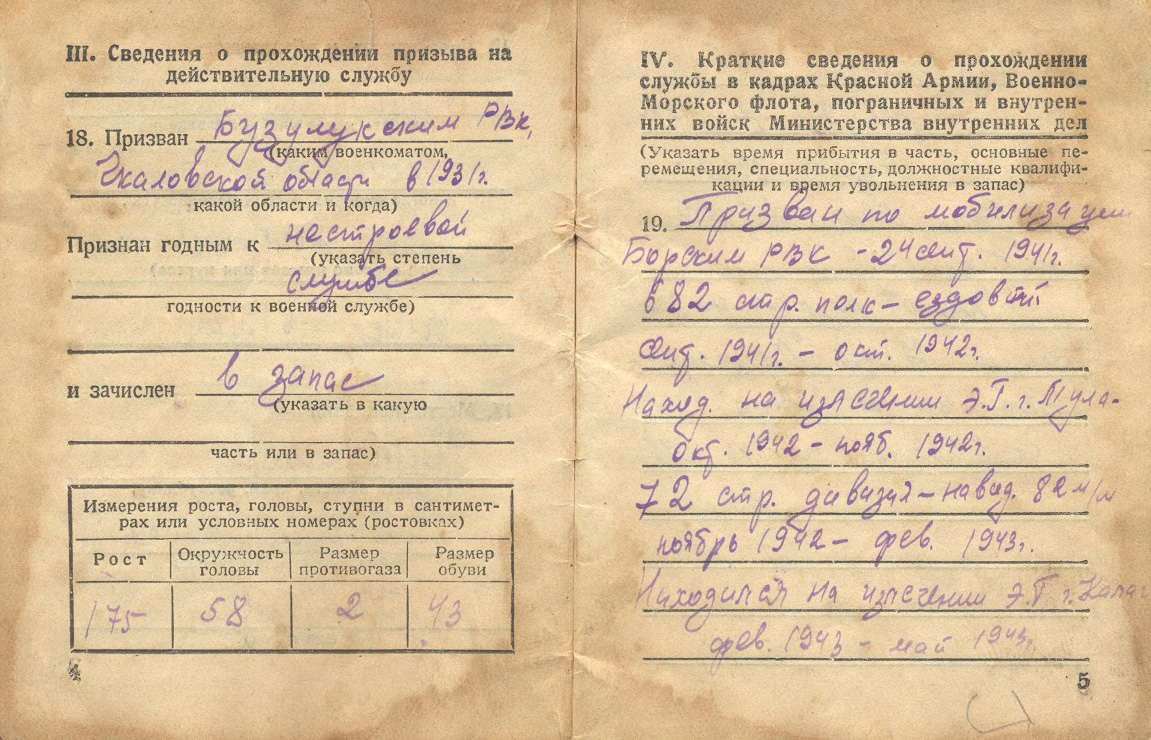 III. Сведения о прохождении призыва на
действительную службу
18. Призван Бузулукским РВК,
(каким военкоматом,
Чкаловской области в 1931г.
какой области и когда)
Признан годным к нестроевой
(указать степень
службе
годности к военной службе)
и зачислен в запас
(указать в какую
часть или в запас)
Измерения роста, головы, ступни в сантимет-
рах или условных номерах (ростовках)
Рост Окружность головы Размер противогаза Размер обуви
175 58 2 43
4
IV. Краткие сведения о прохождении
службы в кадрах Красной Армии, Военно-
Морского флота, пограничных и внутрен-
них войск Министерства внутренних дел
(Указать время прибытия в часть, основные пе-
ремещения, специальность, должностные квалифи-
кации и время увольнения в запас)
19. Призван по мобилизации
Борским РВК - 24 сент. 1941г.
682 стр. полк - ездовой
сент. 1941г. - окт. 1942г.
Наход. на излечении Э.Г. г. Тула -
окт. 1942 - нояб. 1942г.
72 стр. дивизия - навод. 82 м/м
ноябрь 1942 - фев. 1943г.
Находился на излечении Э.Г г.
фев. 1943 - май 1943г.
5